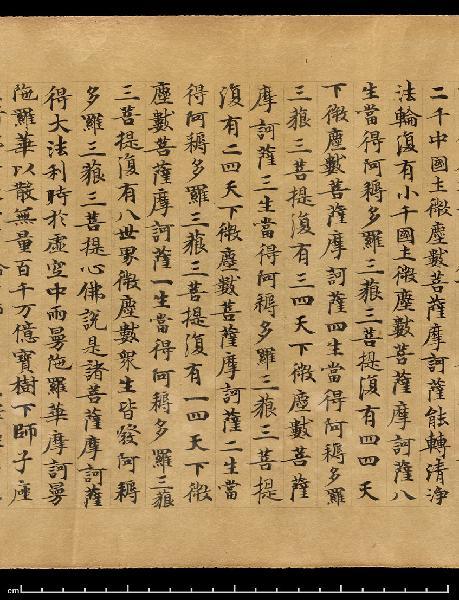 二千中國土微塵數菩薩摩訶薩能轉清淨
法輪復有小千國土微塵數菩薩摩訶薩八
生當得阿耨多羅三藐三菩提復有四四天
下微塵數菩薩摩訶薩四生當得阿耨多羅
三藐三菩提復有三四天下微塵數菩薩
摩訶薩三生當得阿耨多羅三藐三菩提
復有二四天下微塵數菩薩摩訶薩二生當
得阿耨多羅三藐三菩提復有一四天下微
塵數菩薩摩訶薩一生當得阿耨多羅三藐
三菩提復有八世界微塵數衆生皆發阿耨
多羅三藐三菩提心佛說是諸菩薩摩訶薩
得大法利時於虛空中雨曼陁羅華摩訶曼
陁羅華以散無量百千万億寶樹下師子座
cm